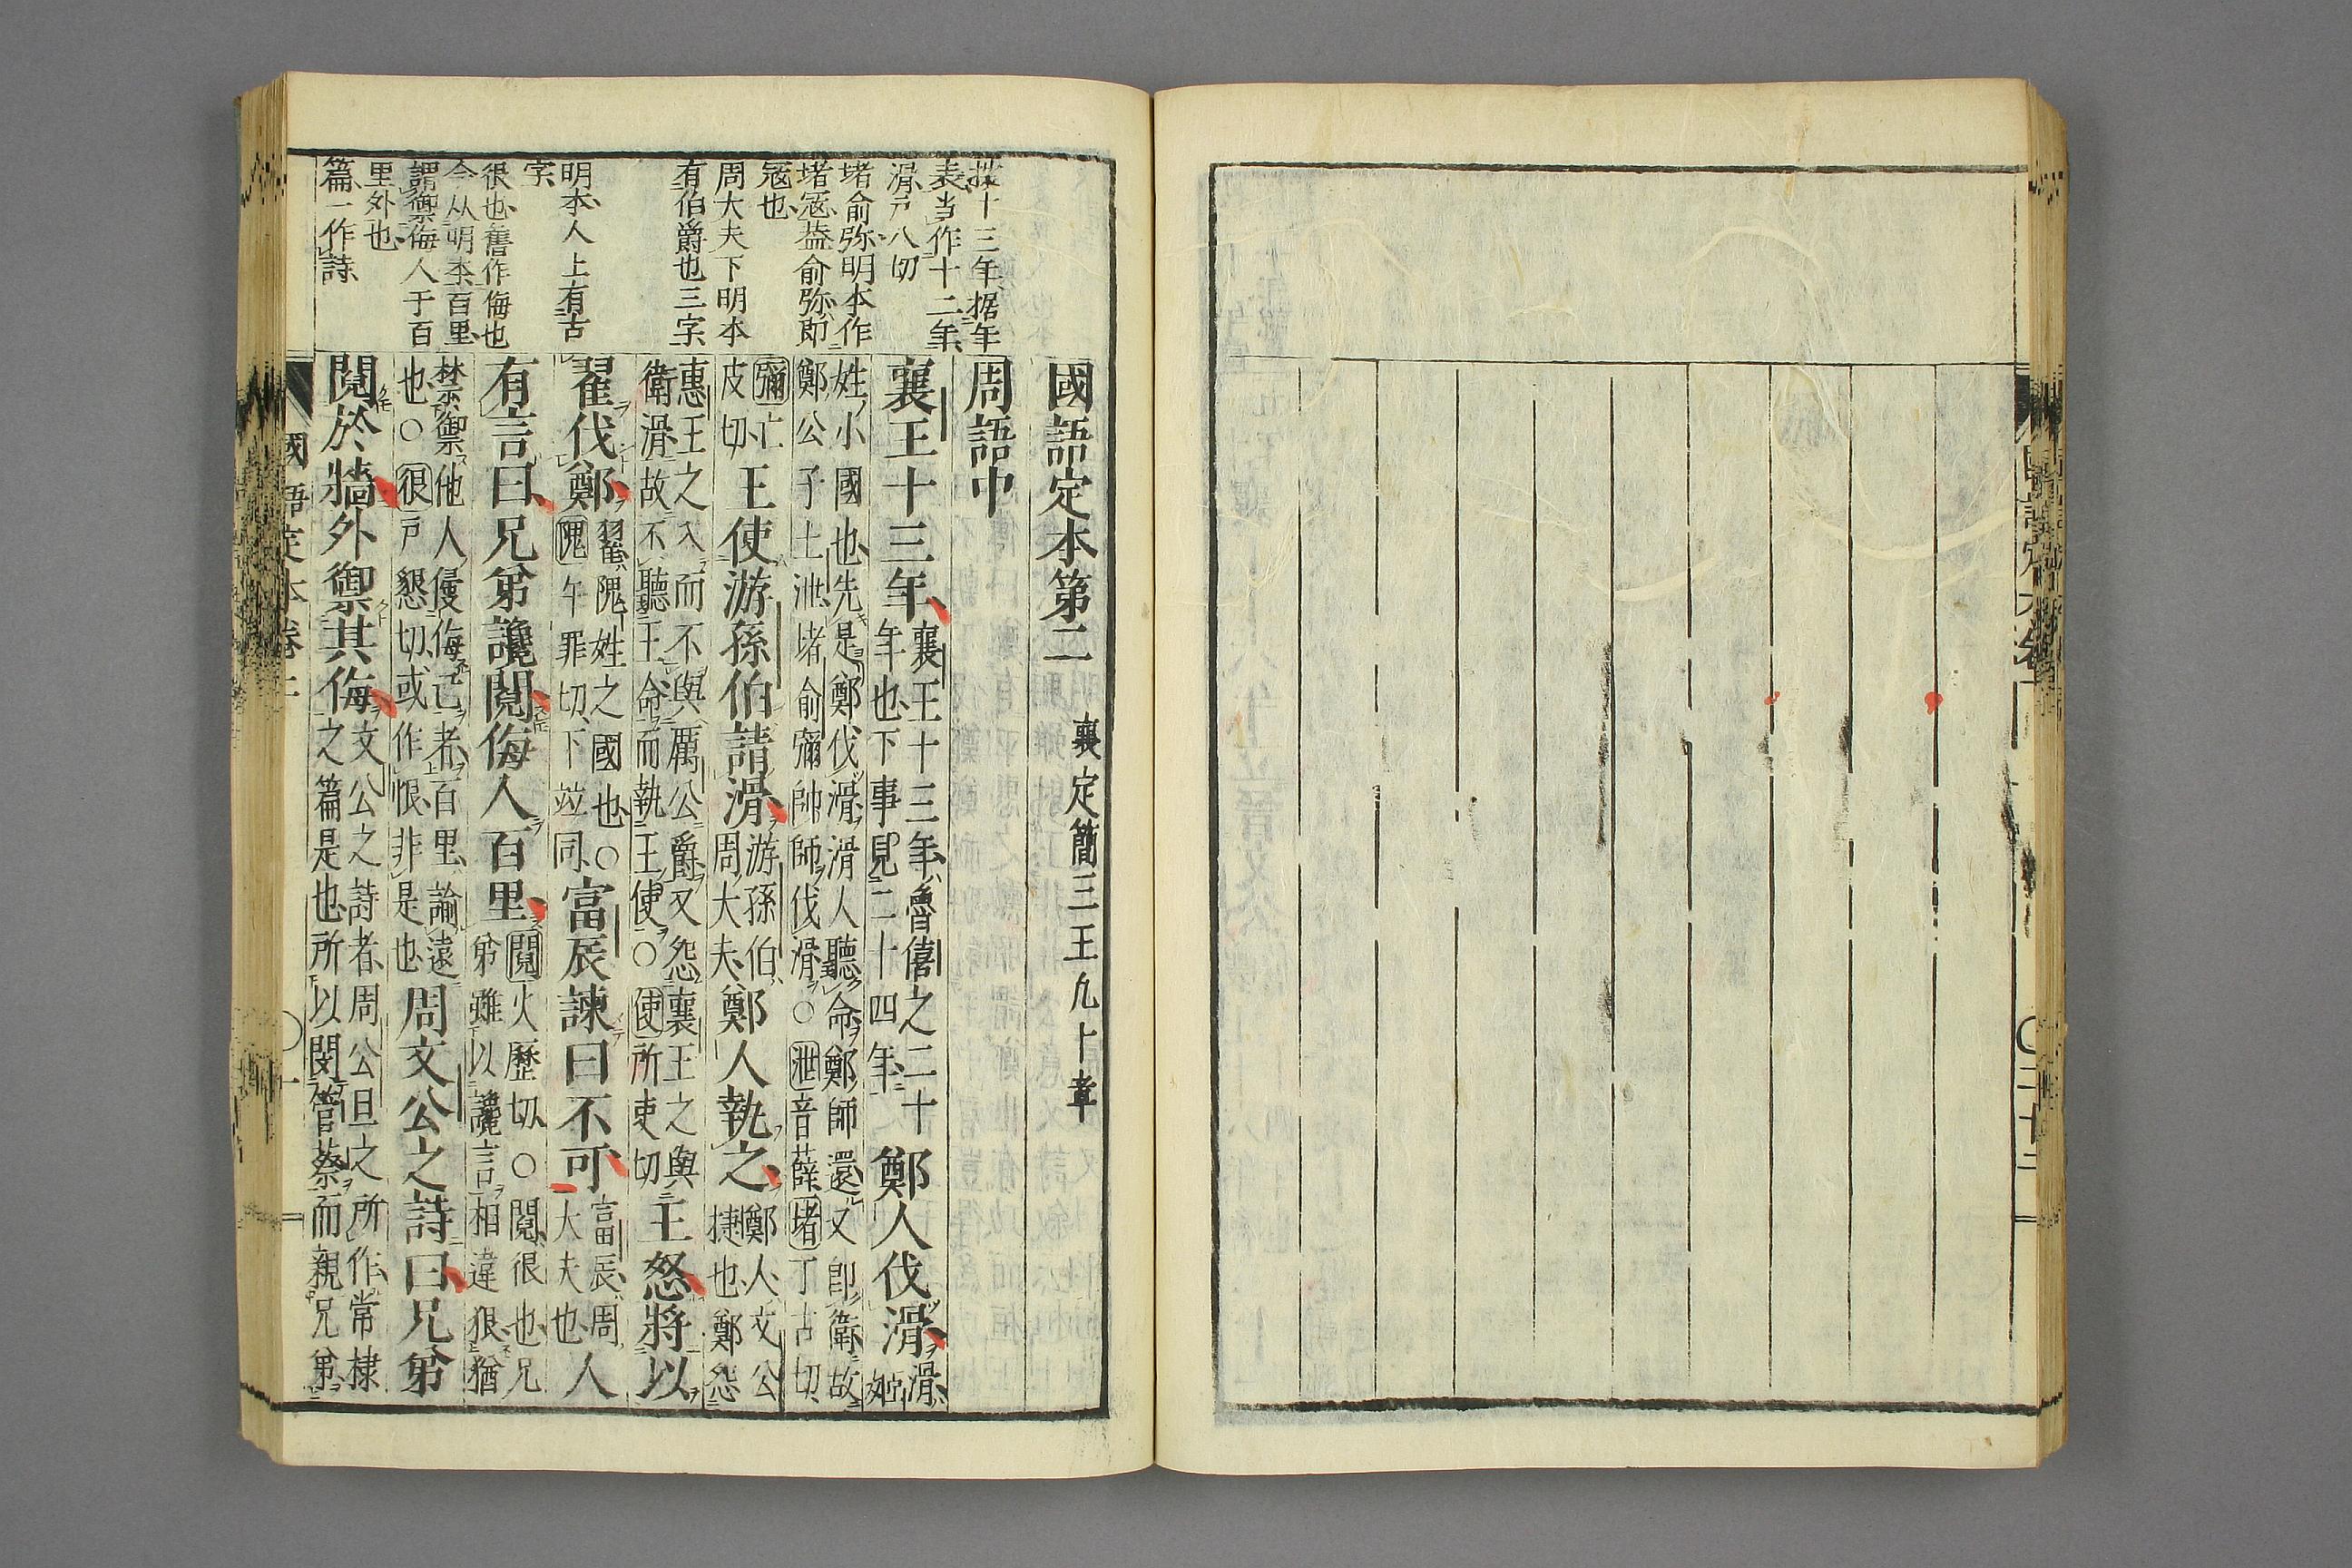 國語定本第二
襄定簡三王九十章
周語中
襄王十三年
襄王十三年魯僖之二十
年也下事見二十四年
鄭人伐滑
滑
姬
姓小國也先是鄭伐滑滑人聽命鄭師還又即衛故
鄭公子士泄堵俞彌帥師伐滑○泄音薛堵丁古切
彌亡
皮切
王使游孫伯請滑
游孫伯
周大夫
鄭人執之
鄭人文公
捷也鄭怨
惠王之入而不與厲公爵又怨襄王之與
衛滑故不聽王命而執王使○使所吏切
王怒將以
翟伐鄭
翟隗姓之國也○
隗午罪切下竝同
富辰諫曰不可
富辰周
大夫也
人
有言曰兄弟讒鬩侮人百里
鬩火歷切○鬩很也兄
弟雖以讒言相違狠猶
禁禦他人侵侮己者百里諭遠
也○很戶懇切或作恨非是也
周文公之詩曰兄弟
鬩於牆外禦其侮
文公之詩者周公旦之所作常棣
之篇是也所以閔管蔡而親兄弟
按十三年據年
表当作十二年
滑戸八切
堵俞弥明本作
堵寇蓋俞弥即
寇也
周大夫下明本
有伯爵也三字
明本人上有古
字
很也舊作侮也
今从明本百里
謂禦侮人于百
里外也
篇一作詩
國語定本卷二
〇一